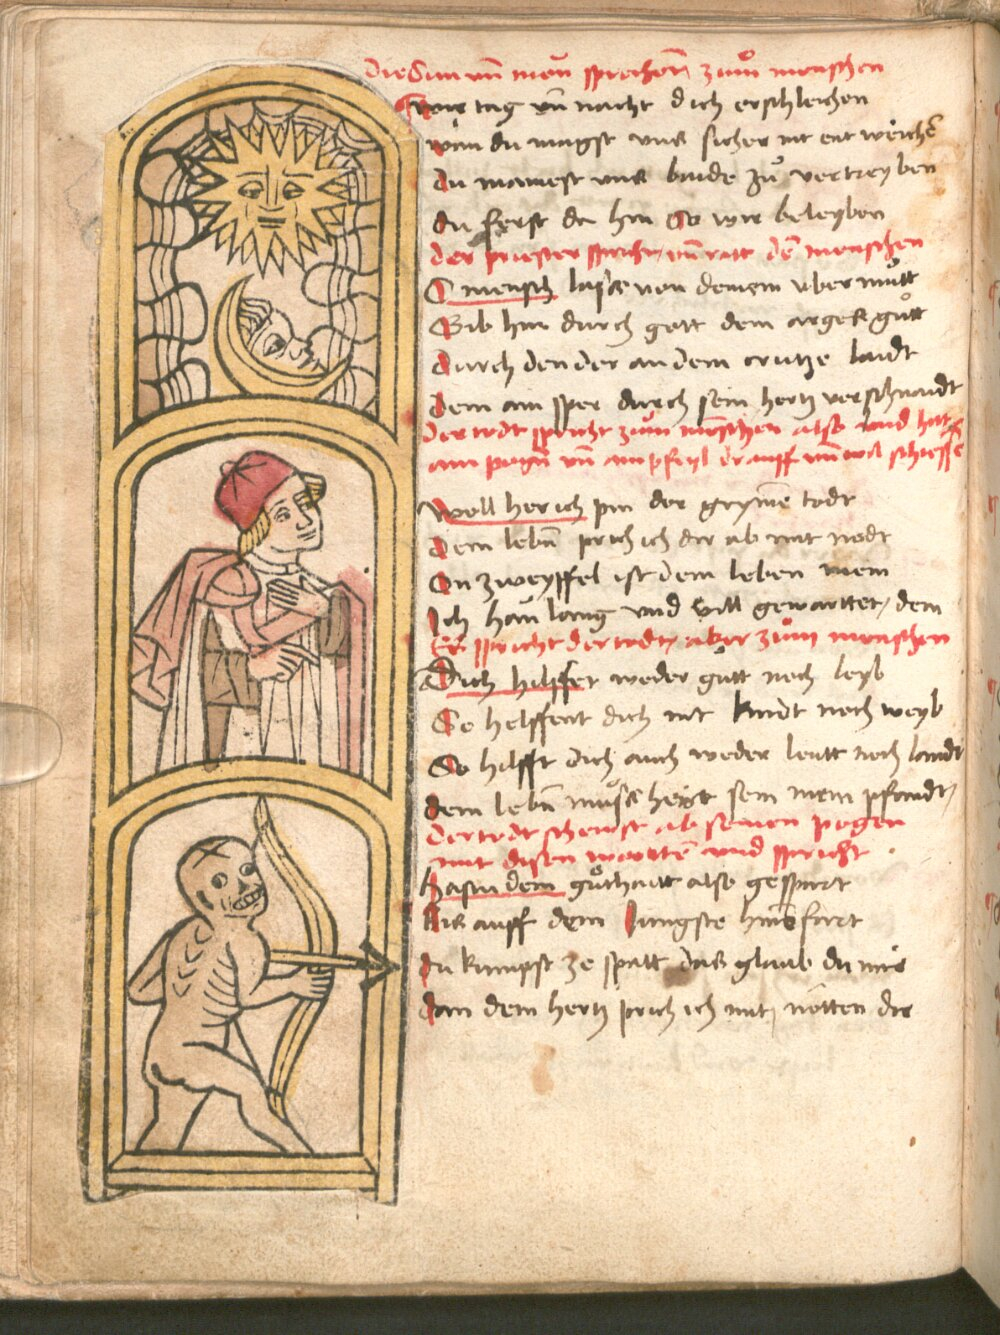 Die Sun vnd mon sprechen zum menschen
wir tag vn nacht dich erschleichen
wan du magst vns sicher nit entweichē
du mainest vns baide zů vertreyben
du ferst da hin So wir beleyben
der priester spricht vnd ratt dē menschen
O mensch laß von deinem vbermůtt
Gib hin durch gott dem arges gůtt
durch den der an dem crütze laidt
dem ain sper durch sein hertz verschnaidt
der todt spricht zum menschen also vnd hatt
ain pogn vn ain pfeyl drauff vnd wil schiessē
Woll her ich pin der grymē todt
Dein lebn prich ich dir ab mit nodt
On zweyffel ist dein leben mein
Ich han lang vnd vill gewarttet dein
Es spricht der todt aber zum menschen
Dich hilffet weder gůtt noch leyb
So helffent dich nit kindt noch weyb
So hilfft dich auch weder leutt noch landt
dein lebn můß hewt sein mein pfandt
der todt scheust ab seinen pogen
mit disen wortten vnd spricht
hastu dein gůthait also gespart
bis auff dein jungste hinfart
du kumpst ze spatt das glaub du mir
dan dein hertz prich ich mit nötten dir